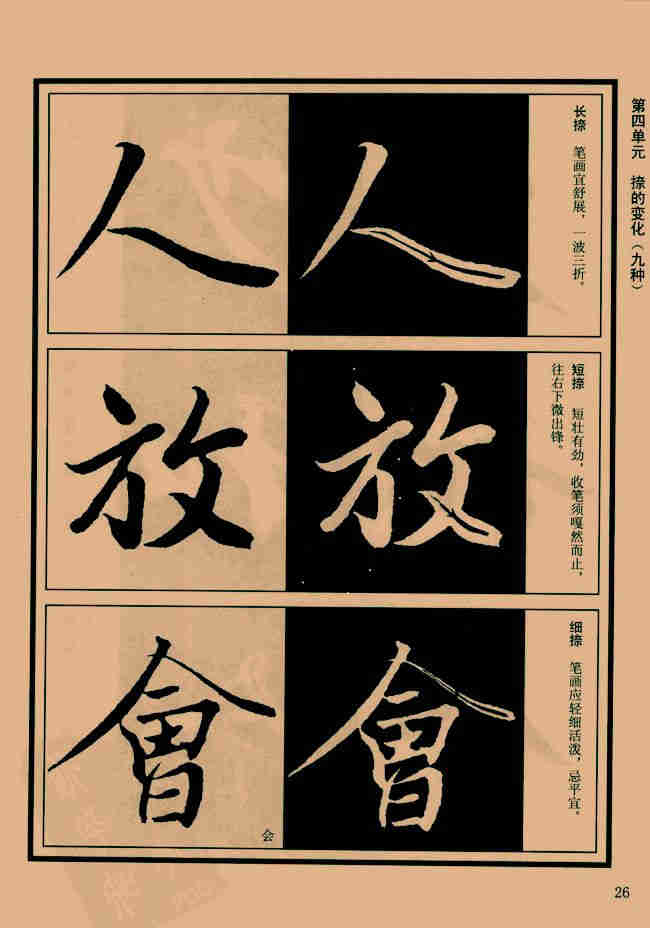 第四单元 捺的变化（九种）
长捺 笔画宜舒展，一波三折。
人 人
短捺 短壮有劲，收笔须嘎然而止，
往右下微出锋。
放 放
细捺 笔画应轻细活泼，忌平宜。
會 會
会
26